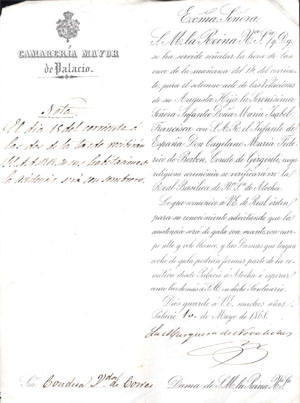 CAMARERÍA MAYOR
de Palacio.
Nota
El día 15 del corriente a
las dos de la tarde recibirán
en sus habitaciones
la sin sombrero.
Excma Señora
S. M. la Reina N.ª S.ª q. D. g.
se ha servido señalar la hora de las
once de la mañana del 14 del corriente,
para el solemne acto de las Velaciones
de su Augusta Hija la Serenísima
Señora Infanta Doña María Isabel
Francisca con S. A. R. el Infante de
España Don Cayetano María Fede-
rico de Borbon, Conde de Girgenti, cuya
religiosa ceremonia se verificará en la
Real Basílica de N.ª S.ª de Atocha.
Lo que comunico á V. E. de Real órden
para su conocimiento advirtiendo que la
asistencia será de gala con manto
alto y velo blanco, y las Damas que tengan
coche de gala podrán formar parte de la co-
mitiva desde Palacio á Atocha ó esperar
entre las demás á S. M. en dicho Santuario.
Dios guarde á V. E. muchos años.
Palacio 10 de Mayo de 1868.
La Marquesa de Novaliches
Sra Condesa V.da de Torres
Dama de S. M. la Reina N.ª S.ª